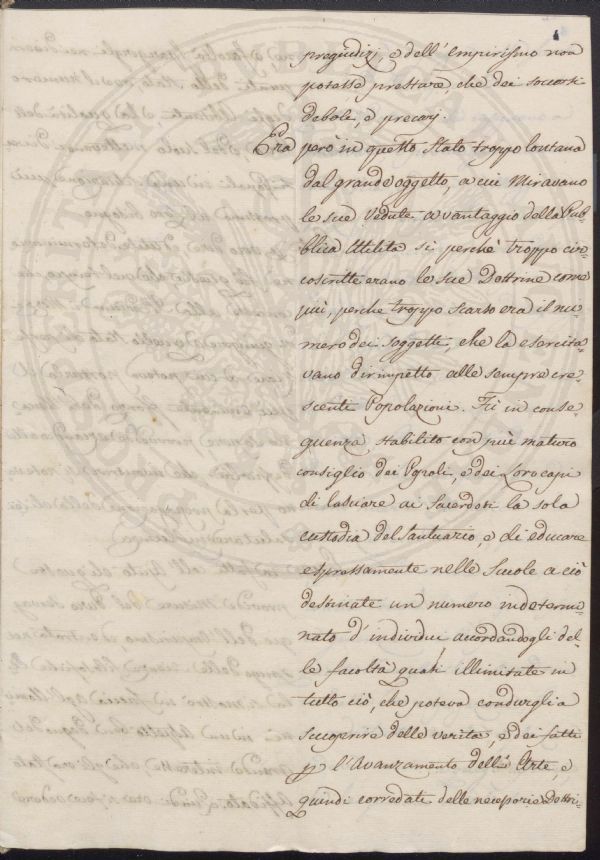 pregiudizj, e dell'Empirismo non
potesse prestare, che dei soccorsi
deboli, e precarj.
Era però in questo stato troppo lontana
dal grande oggetto, a cui miravano
le sue vedute a vantaggio della Pub-
blica Utilità sì perchè troppo cir-
coscritte erano le sue Dottrine come
più, perchè troppo scarso era il nu-
mero dei soggetti, che la esercita-
vano dirimpetto alle sempre cre-
scenti Popolazioni. Fù in conse-
guenza stabilito con più maturo
consiglio dei Popoli, e dei Loro capi
di lasciare ai Sacerdoti la sola
custodia del Santuario, e di educare
espressamente nelle Scuole a ciò
destinate un numero indetermi-
nato d'individui accordandogli del-
le facoltà quasi illimitate in
tutto ciò, che poteva condurgli a
scuoprire delle verità, e dei fatti
p l'Avanzamento dell'Arte, e
quindi corredati delle necessarie Dottri-